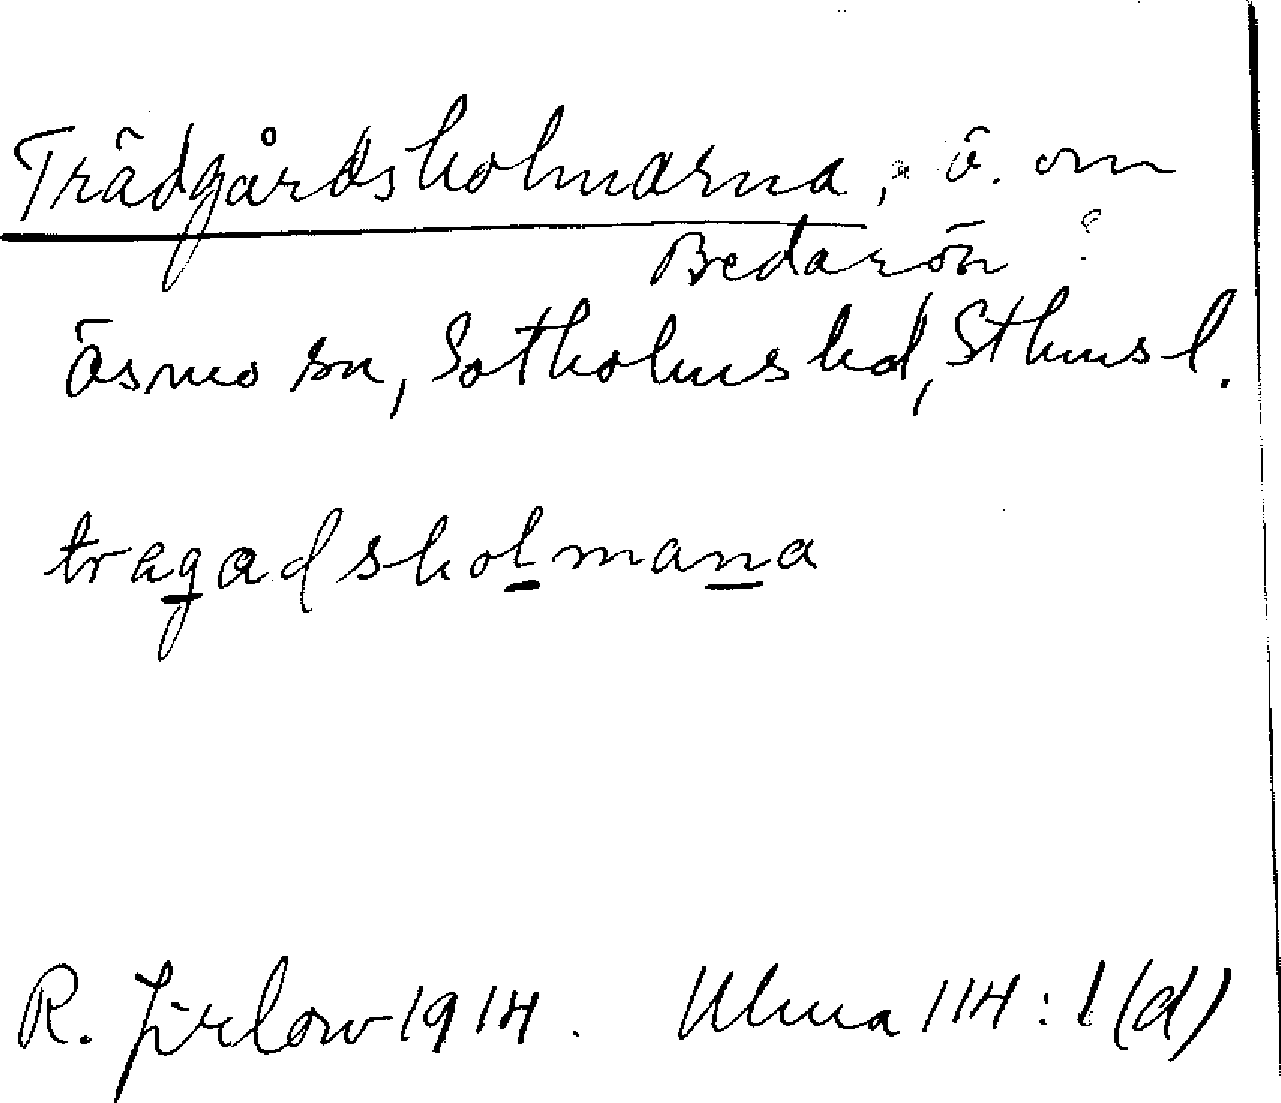 Trädgårdsholmarna, ö. om
Bedarön ?
Ösmo sn, Sotholms hd, Sthms l.
tragadsholmana
R. Jirlow 1914. Ulma 114:1(d)